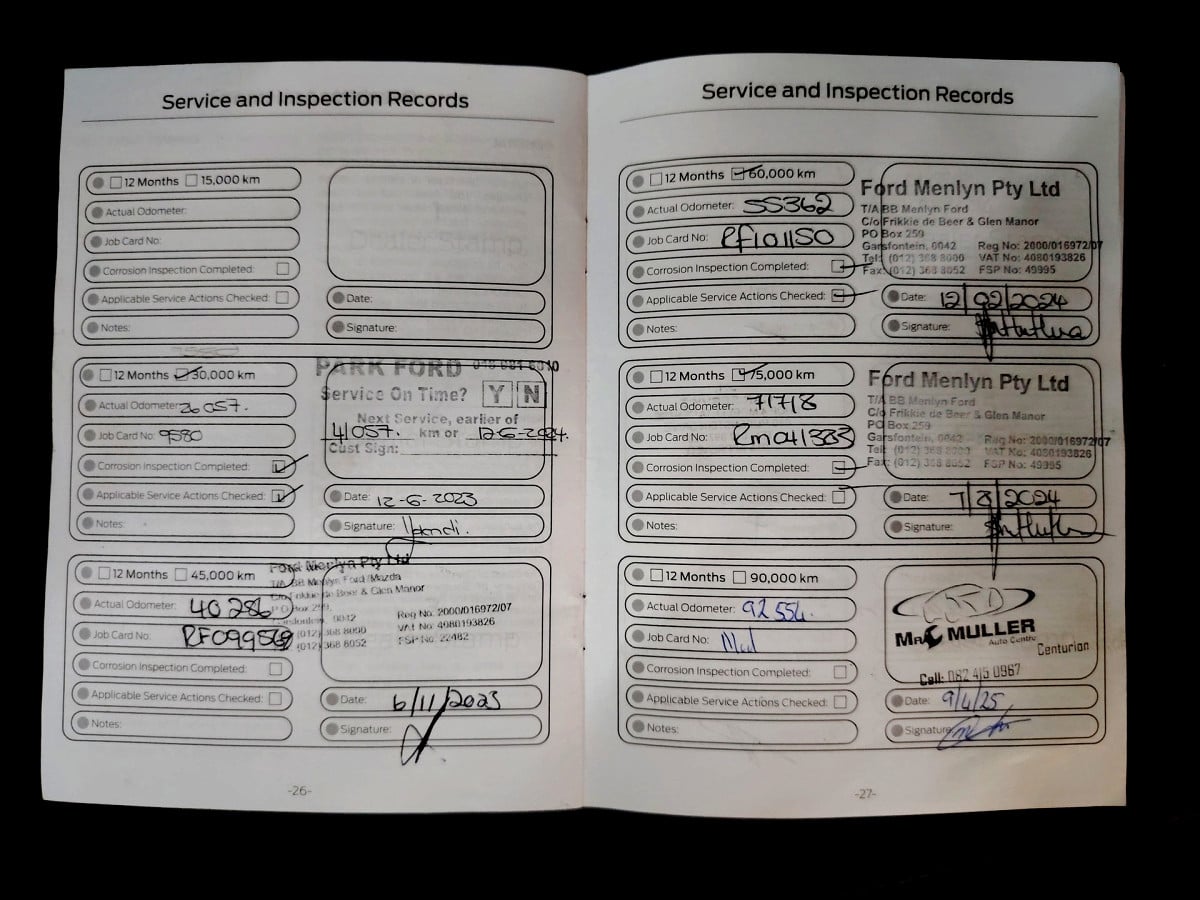 Service and Inspection Records
12 Months 15,000 km
Actual Odometer:
Job Card No:
Corrosion Inspection Completed:
Applicable Service Actions Checked:
Notes:
Dealer Stamp
Date:
Signature:
12 Months 30,000 km
Actual Odometer: 26057.
Job Card No: 9580
Corrosion Inspection Completed:
Applicable Service Actions Checked:
Notes:
PARK FORD
Service On Time? Y N
Next Service, earlier of
41057. km or 12-6-2024.
Cust Sign:
Date: 12-6-2023
Signature:
12 Months 45,000 km
Actual Odometer: 40286
Job Card No:
Corrosion Inspection Completed:
Applicable Service Actions Checked:
Notes:
Ford Menlyn Pty Ltd
T/A BB Menlyn Ford/Mazda
C/o Frikkie de Beer & Glen Manor
0042 Reg No. 2000/016972/07
(012) 368 8000 VAT No. 4080193826
(012) 368 8052 FSP No. 22482
Date: 6/11/2023
Signature:
-26-
Service and Inspection Records
12 Months 60,000 km
Actual Odometer: 55362
Job Card No: Rf101150
Corrosion Inspection Completed:
Applicable Service Actions Checked:
Notes:
Ford Menlyn Pty Ltd
T/A BB Menlyn Ford
C/o Frikkie de Beer & Glen Manor
PO Box 259
Garsfontein, 0042 Reg No: 2000/016972/07
Tel: (012) 368 8000 VAT No: 4080193826
Fax: (012) 368 8052 FSP No: 49995
Date: 12/02/2024
Signature:
12 Months 75,000 km
Actual Odometer: 71718
Job Card No: Rm041383
Corrosion Inspection Completed:
Applicable Service Actions Checked:
Notes:
Ford Menlyn Pty Ltd
T/A BB Menlyn Ford
C/o Frikkie de Beer & Glen Manor
PO Box 259
Garsfontein, 0042 Reg No: 2000/016972/07
Tel: (012) 368 8000 VAT No: 4080193826
Fax: (012) 368 8052 FSP No: 49995
Date: 7/8/2024
Signature:
12 Months 90,000 km
Actual Odometer: 92554.
Job Card No:
Corrosion Inspection Completed:
Applicable Service Actions Checked:
Notes:
MULLER
Auto Centre
Centurion
Cell: 082 415 0967
Date: 9/4/25
Signature:
-27-